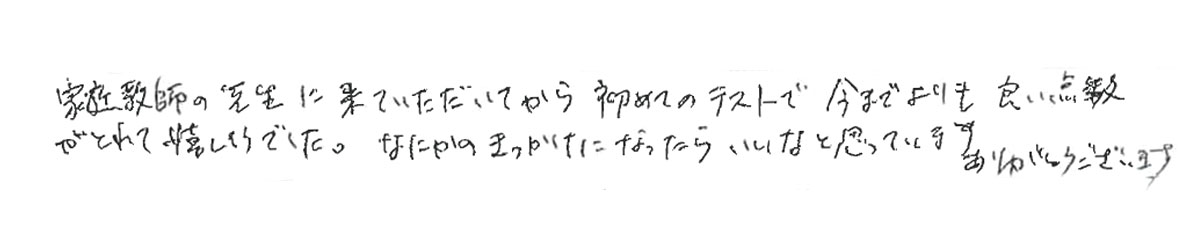 家庭教師の先生に来ていただいてから初めてのテストで今までよりも良い点数
がとれて嬉しそうでした。なにかのきっかけになったらいいなと思っています
ありがとうございます